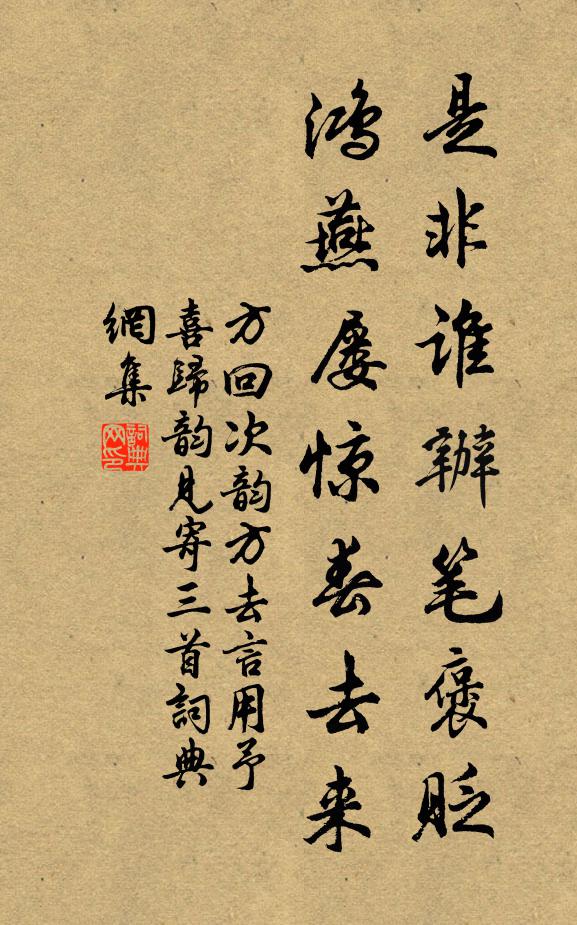 是非谁辦笔褒贬
鸿燕屡惊春去来
方回次韵方去言用予
喜歸韵见寄三首詞典
網集
詞典
网印